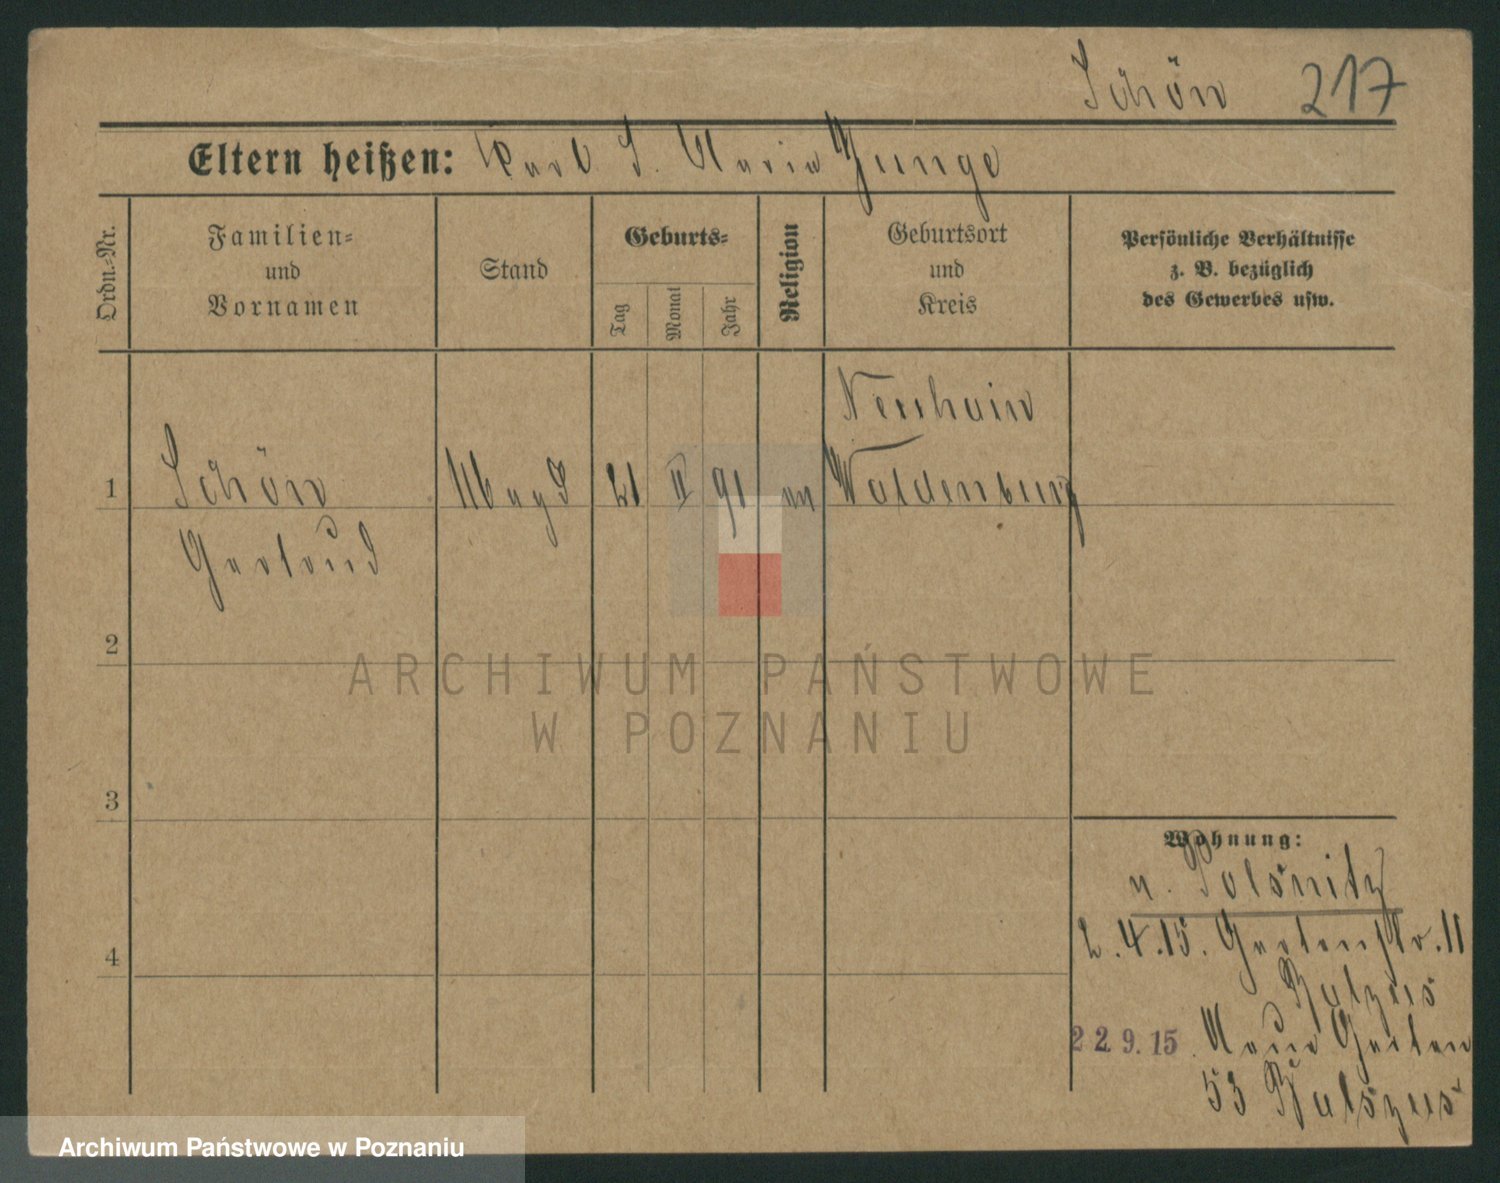 Schön 217
Eltern heißen: Karl S. Maria Junge
Ordn.-Nr.
Familien-
und
Vornamen
Stand
Geburts-
Tag
Monat
Jahr
Religion
Geburtsort
und
Kreis
Persönliche Verhältnisse
z. B. bezüglich
des Gewerbes usw.
Neuhain
1 Schön Magd 21 II 91 Waldenburg
Gertrud
2
ARCHIWUM PAŃSTWOWE
W POZNANIU
3
Wohnung:
n. Polsnitz
4
2.4.15. Gartenstr. 11
22.9.15 Neue Garten
53
Archiwum Państwowe w Poznaniu